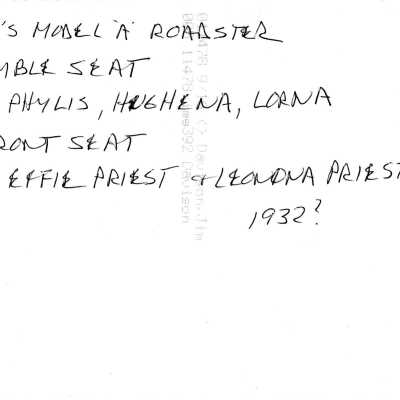 'S MODEL "A" ROADSTER
MBLE SEAT
PHYLIS, HUGHENA, LORNA
RONT SEAT
EFFIE PRIEST & LEONONA PRIEST
1932?